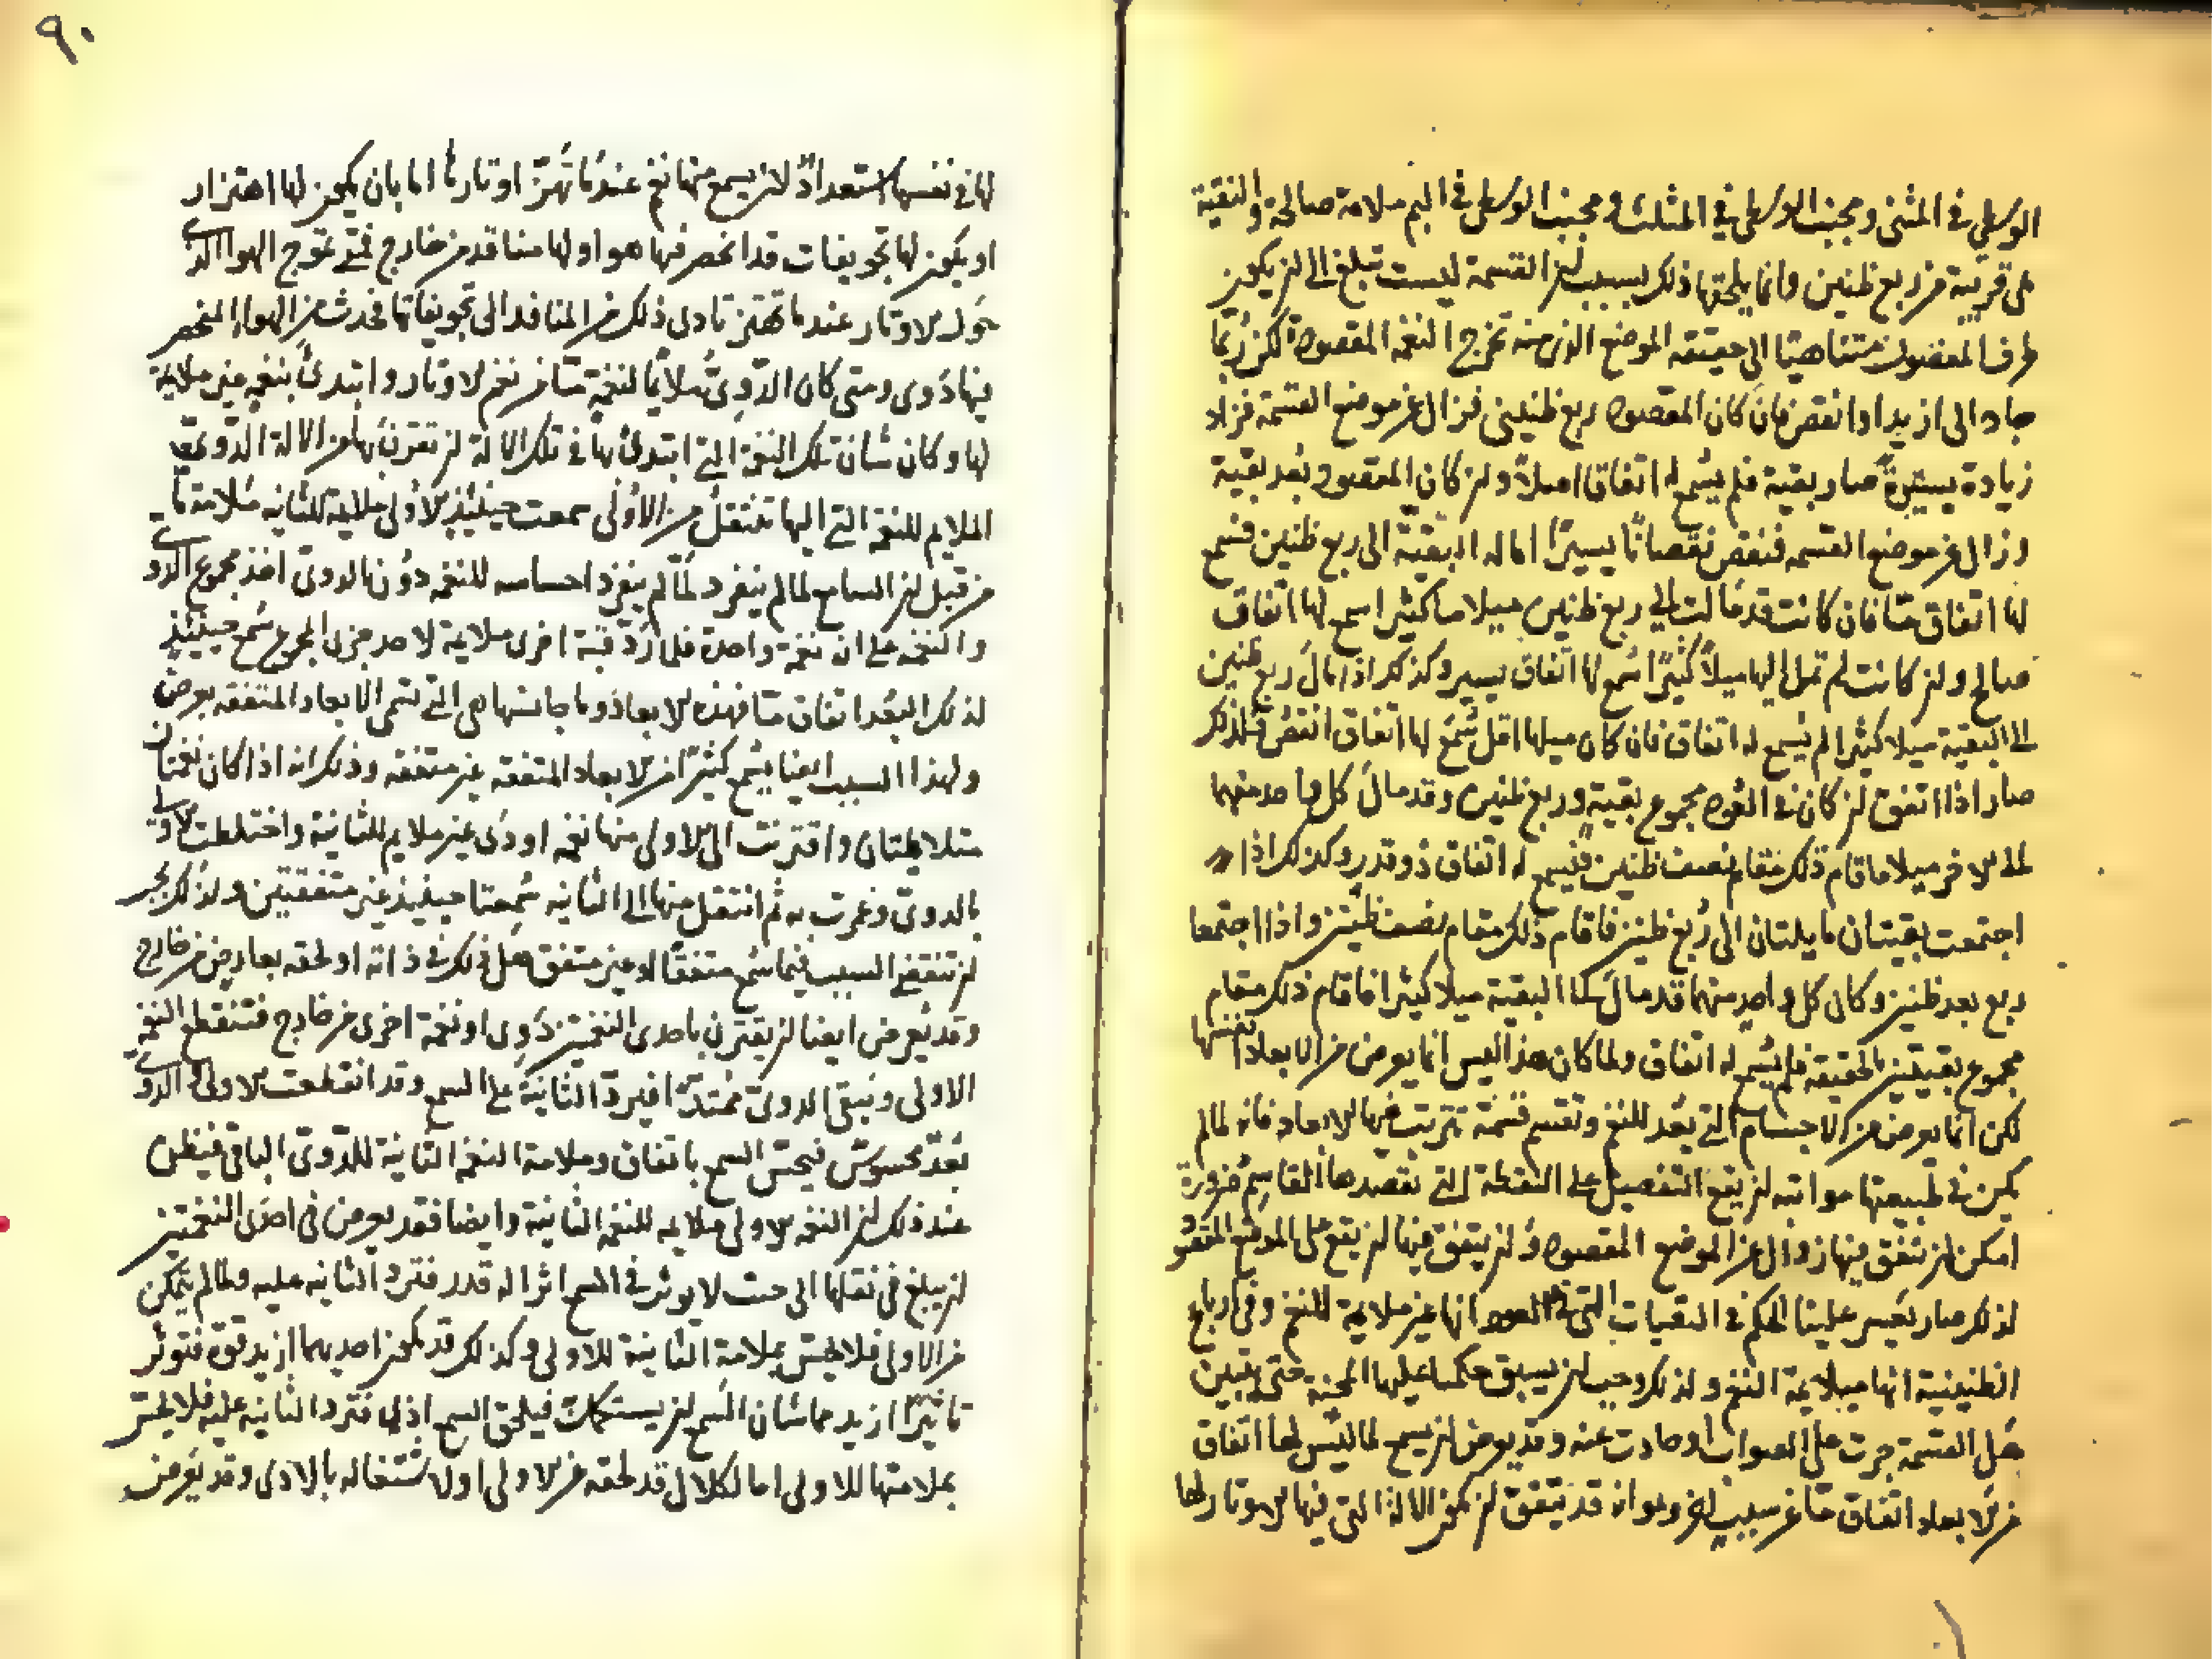 الوسطى في المثنى ومجنب الوسطى في المثلث ومجنب الوسطى في البم ملامة صالحة والبقية
هي قريبة من ربع طنين وانما يلحقها ذلك بسبب ان القسمة ليست تبلغ الى ان يكون
طرف المفصول متناهيا الى حقيقة الموضع الذى منه تخرج النغمة المقصودة لكن ربما
حاد الى ازيد او انقص فان كان المقصود ربع طنين فزال عن موضع القسمة فزاد
زيادة يسيرة صار بقية فلم يسمع له اتفاق اصلا وان كان المقصود بعد بقية
وزال عن موضع القسمة فنقص نقصانا يسيرا اماله البقية الى ربع طنين فسمع
لها اتفاق ما فان كانت قد مالت الى ربع طنين ميلا ما كثيرا سمع لها اتفاق
صالح وان كانت لم تمل اليها ميلا كثيرا سمع لها اتفاق يسير وكذلك اذا مال ربع طنين
الى البقية ميلا كثيرا لم يسمع له اتفاق فان كان ميلها اقل سمع لها اتفاق انقص فلذلك
صار اذا اتفق ان كان في العود مجموع بقية وربع طنين وقد مال كل واحد منهما
الى الاخر ميلا ما قام ذلك مقام نصف طنين فيسمع له اتفاق ذو قدر وكذلك اذا
اجتمعت بقيتان مايلتان الى ربع طنين فاقام ذلك مقام نصف طنين واذا اجتمعا
ربع بعد طنين وكان كل واحد منهما قد مال الى البقية ميلا كثيرا فاقام ذلك مقام
مجموع بقيتين بالحقيقة فلم يسمع له اتفاق ولما كان هذا ليس انما يعرض من الابعاد انفسها
لكن انما يعرض من الاجسام التي تعد للنغم وتقسم قسمة تترتب فيها الابعاد فانه لما لم
يمكن في طبيعتها مواتية ان يقع التفصيل على النقطة التي نقصدها القاسم ضرورة
امكن ان يتفق فيها زوال عن الموضع المقصود وان يتفق فيها ان يقع على الموضع المقصو
لذلك صار يعسر علينا الحكم في البقيات التي في العود انها غير ملايمة للنغم وفي ارباع
الطنينية انها ملايمة النغم ولذلك وجب ان يسبق حكمنا عليها المحنة حتى يتبين
هل القسمة جرت على الصواب او حادت عنه وقد يعرض ان يسمع لما ليس لها اتفاق
من الابعاد اتفاق ما عن سبب اخر وهو انه قد يتفق ان تكون الالة التي فيها الاوتار لها
٩٠
لها في نفسها استعداد لان يسمع منها نغم عندما تهتز اوتارها اما بان يكون لها اهتزاز
او يكون لها تجويفات قد انحصر فيها هوا ولها منافذ من خارج فمتى تموج الهوا الذي
حول الاوتار عندما تهتز تادى ذلك من المنافذ الى تجويفاتها فحدث من الهواء المنحصر
فيها دوى ومتى كان الدوى ملايما لنغمة ما من نغم الاوتار وابتدئ بنغم غير ملايمة
لها وكان شان تلك النغمة التي ابتدئ بها في تلك الالة ان تقترن بها من الالة الدوى
الملايم للنغمة التي اليها تنتقل من الاولى سمعت حينئذ الاولى ملايمة للثانية ملامة ما
من قبل ان السامع لما لم ينفرد لما لم ينفرد احساسه للنغمه دون الدوى اخذ مجموع الدوى
والنغمة على انه نغمة واحدة فلما رد قبة اخرى ملايمة لاحد جزى المجموع سمع حينئذ
لذلك البعد اتفاق ما فهذه الابعاد وما جانسها هي التي تسمى الابعاد المتفقه بعرض
ولهذا السبب ايضا يسمع كثيرا من الابعاد المتفقه غير متفقه وذلك انه اذا كان نغمتان
متلايمتان واقترنت الى الاولى منها نغمه او دوى غير ملايم للثانية واختلطت الاولى
بالدوى وغمرت به ثم انتقل منها الى الثانية سمعتا حينئذ غير متفقتين ولذلك يجب
ان تنقضي السبب فيما سمع متفقا او غير متفق هل ذلك في ذاته او لحقه بعارض من خارج
وقد يعرض ايضا ان يقترن باحدى النغمتين دوى او نغمة اخرى من خارج فتنقطع النغمة
الاولى ويبقى الدوى ممتدا فيرد الثانية على السمع وقد انقطعت الاولى والدوى
بعد محسوس فيحس السمع باتفاق وملامة النغمة الثانية للدوى الباقى فيظن
عند ذلك ان النغمة الاولى ملايمه للنغمه الثانية وايضا فقد يعرض في احدى النغمتين
ان يبلغ في ثقلها الى حيث لا يوثر في السمع اثرا له قدر فترد الثانيه عليه ولما لم يتمكن
من الاولى فلا يحس بملامة الثانية للاولى وكذلك قد تكون احديهما ازيد قوة فتوثر
تاثيرا ازيد مما شان السمع ان يستكملت فيلحق السمع اذى فترد الثانيه عليه فلا يحس
بملامتها للاولى اما لكلال قد لحقه من الاولى او لاشتغاله بالاذى وقد يعرض